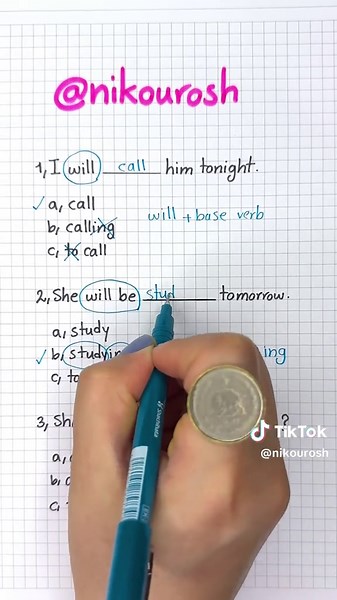 @nikourosh
1, I will call him tonight.
a, call
b, calling
c, to call
will + base verb
2, She will be stud tomorrow.
a, study
b, studyin
ing
c, to
3, Sh ?
a,
b,
c,
TikTok
@nikourosh